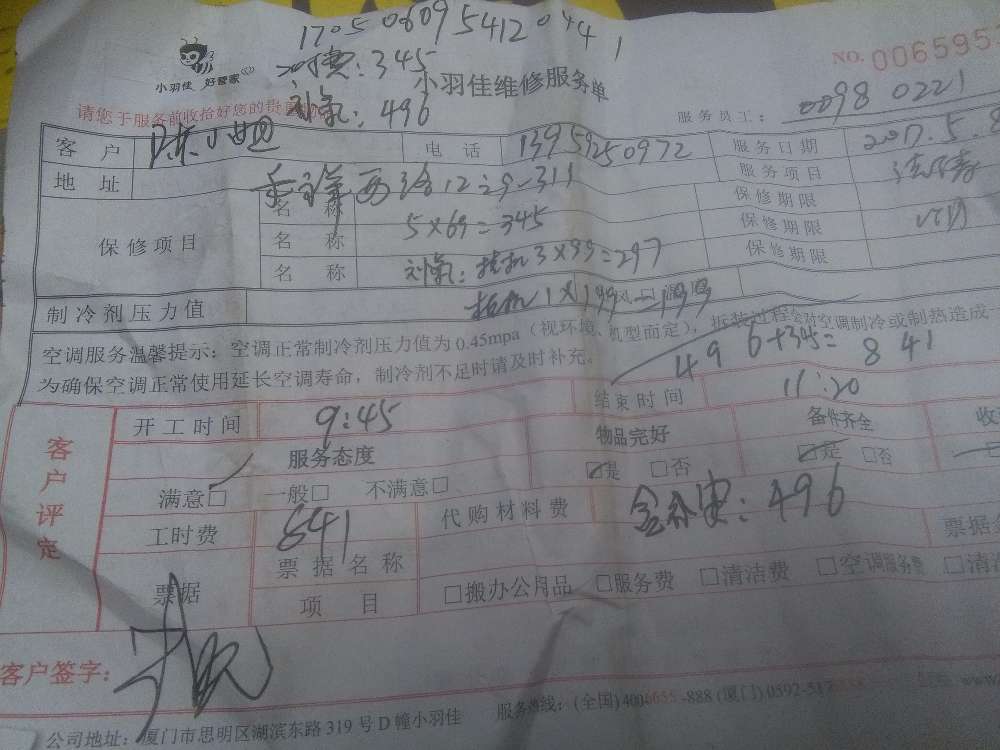 1705060954120441
345
小羽佳 好管家
小羽佳维修服务单
NO. 006595
请您于服务前收拾好您的
496
服务员工： 0980221
客户 陈小姐 电话 13959250972 服务日期 2017.5.8
地址 12-311 服务项目
保修项目 名称 5×69=345 保修期限
名称 挂机3×99=297 保修期限
名称 保修期限
制冷剂压力值 柜机1×199=199
空调服务温馨提示：空调正常制冷剂压力值为0.45mpa（视环境、机型而定），拆装过程会对空调制冷或制热造成一
为确保空调正常使用延长空调寿命，制冷剂不足时请及时补充。 496+345=841
客户评定
开工时间 9:45 结束时间 11:20
服务态度 物品完好 备件齐全 收
满意□ 一般□ 不满意□ □是 □否 □是 □否
工时费 841 代购材料费 496
票据 票据名称 票据
项目 □搬办公用品 □服务费 □清洁费 □空调服务费 □清洁
客户签字：
公司地址：厦门市思明区湖滨东路319号D幢小羽佳 服务热线：(全国)4006655-888 (厦门)0592-517 www.